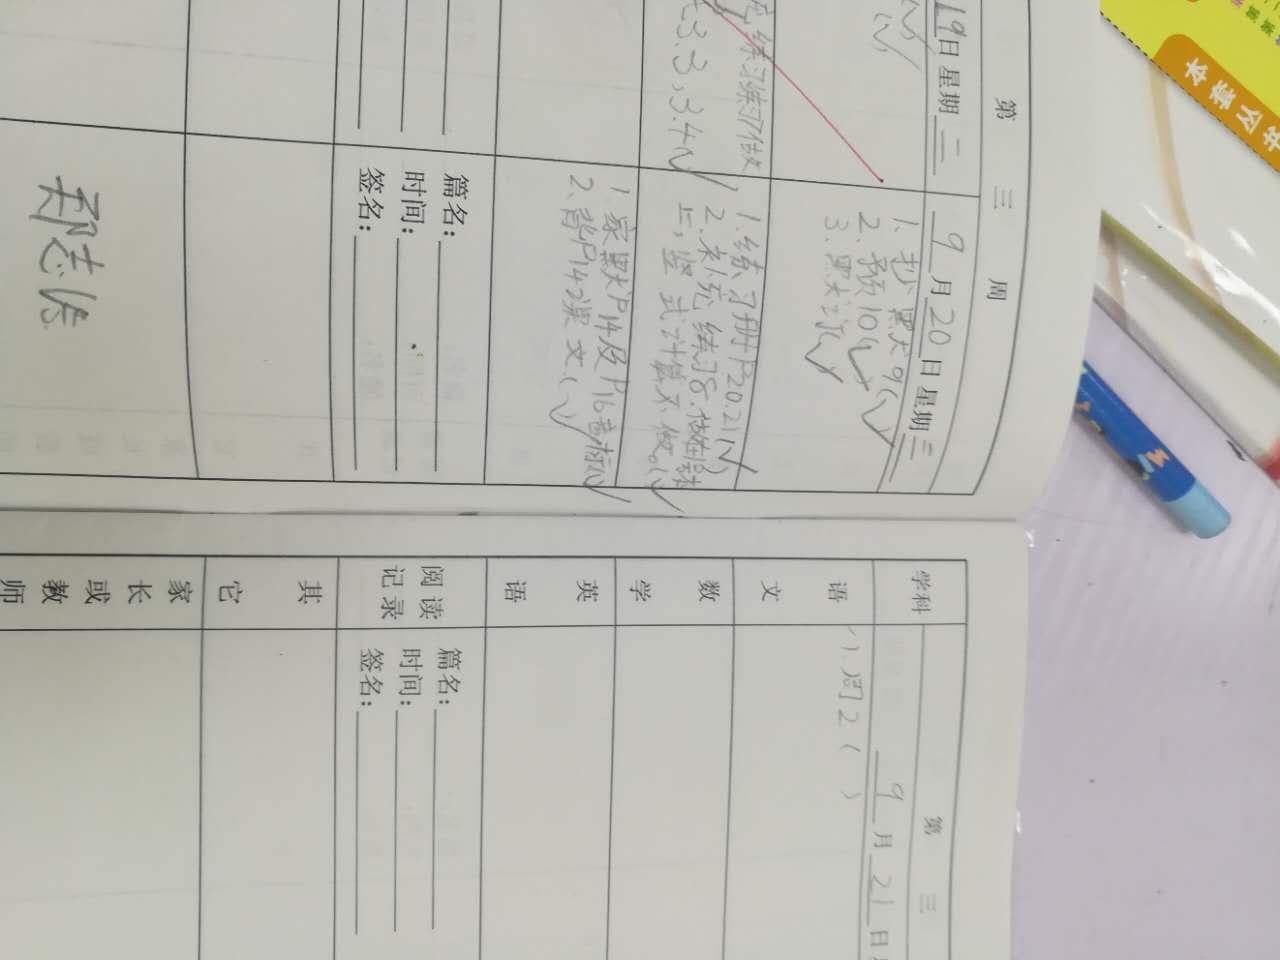 本套丛书
第 三 周
19日 星期 二
练习
3.3,3.4
9 月 20 日 星期 三
1. 抄默9(√)
2. 预10(√)
3. 默
1. 练习册P20.21(√)
2. 补充练习8.
上,竖式计算不做。(√)
1. 家默P14及P16音标(√)
2. 背P142课文(√)
篇名:
时间:
签名:
篇名:
时间:
签名:
第 三
学科
9 月 21 日
语 文
1. 周2( )
数 学
英 语
阅读
记录
篇名:
时间:
签名:
其 它
家长或教师